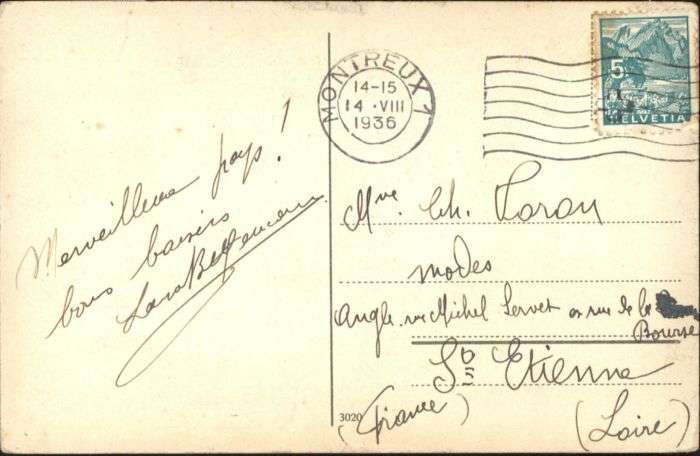 Merveilleux pays !
bons baisers
MONTREUX 1
14-15
14 · VIII
1936
5
HELVETIA
Mme. Ch. Laran
modes
Angle. rue Michel Servet et rue de la
Bourse
St Etienne
(France)
(Loire)
3020